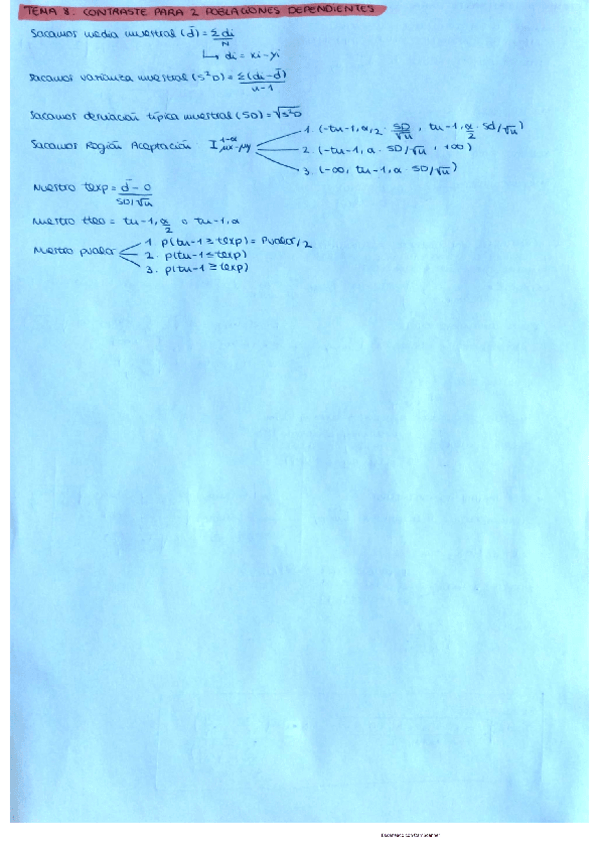 TEMA 8. CONTRASTE PARA 2 POBLACIONES DEPENDIENTES
Sacamos media muestral (d̄) = Σdi/N
↳ di = xi - yi
Sacamos varianza muestral (S²D) = Σ(di - d̄)/n-1
Sacamos derivación típica muestral (SD) = √S²D
Sacamos Región Aceptación I 1-α μx-μy
1. (-tn-1, α/2 · SD/√n, tn-1, α/2 · Sd/√n)
2. (-tn-1, α · SD/√n, +∞)
3. (-∞, tn-1, α · SD/√n)
Nuestro texp = d̄ - 0 / SD/√n
Nuestro tteo = tn-1, α/2 o tn-1, α
Nuestro pvalor
1. p(tn-1 ≥ texp) = Pvalor/2
2. p(tn-1 ≤ texp)
3. p(tn-1 ≥ texp)